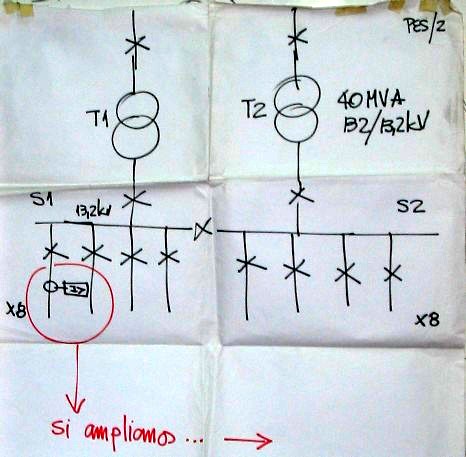 PES/2
T1
T2
40 MVA
132/13,2kV
S1
13,2kV
S2
3I>
x8
x8
si ampliamos ...